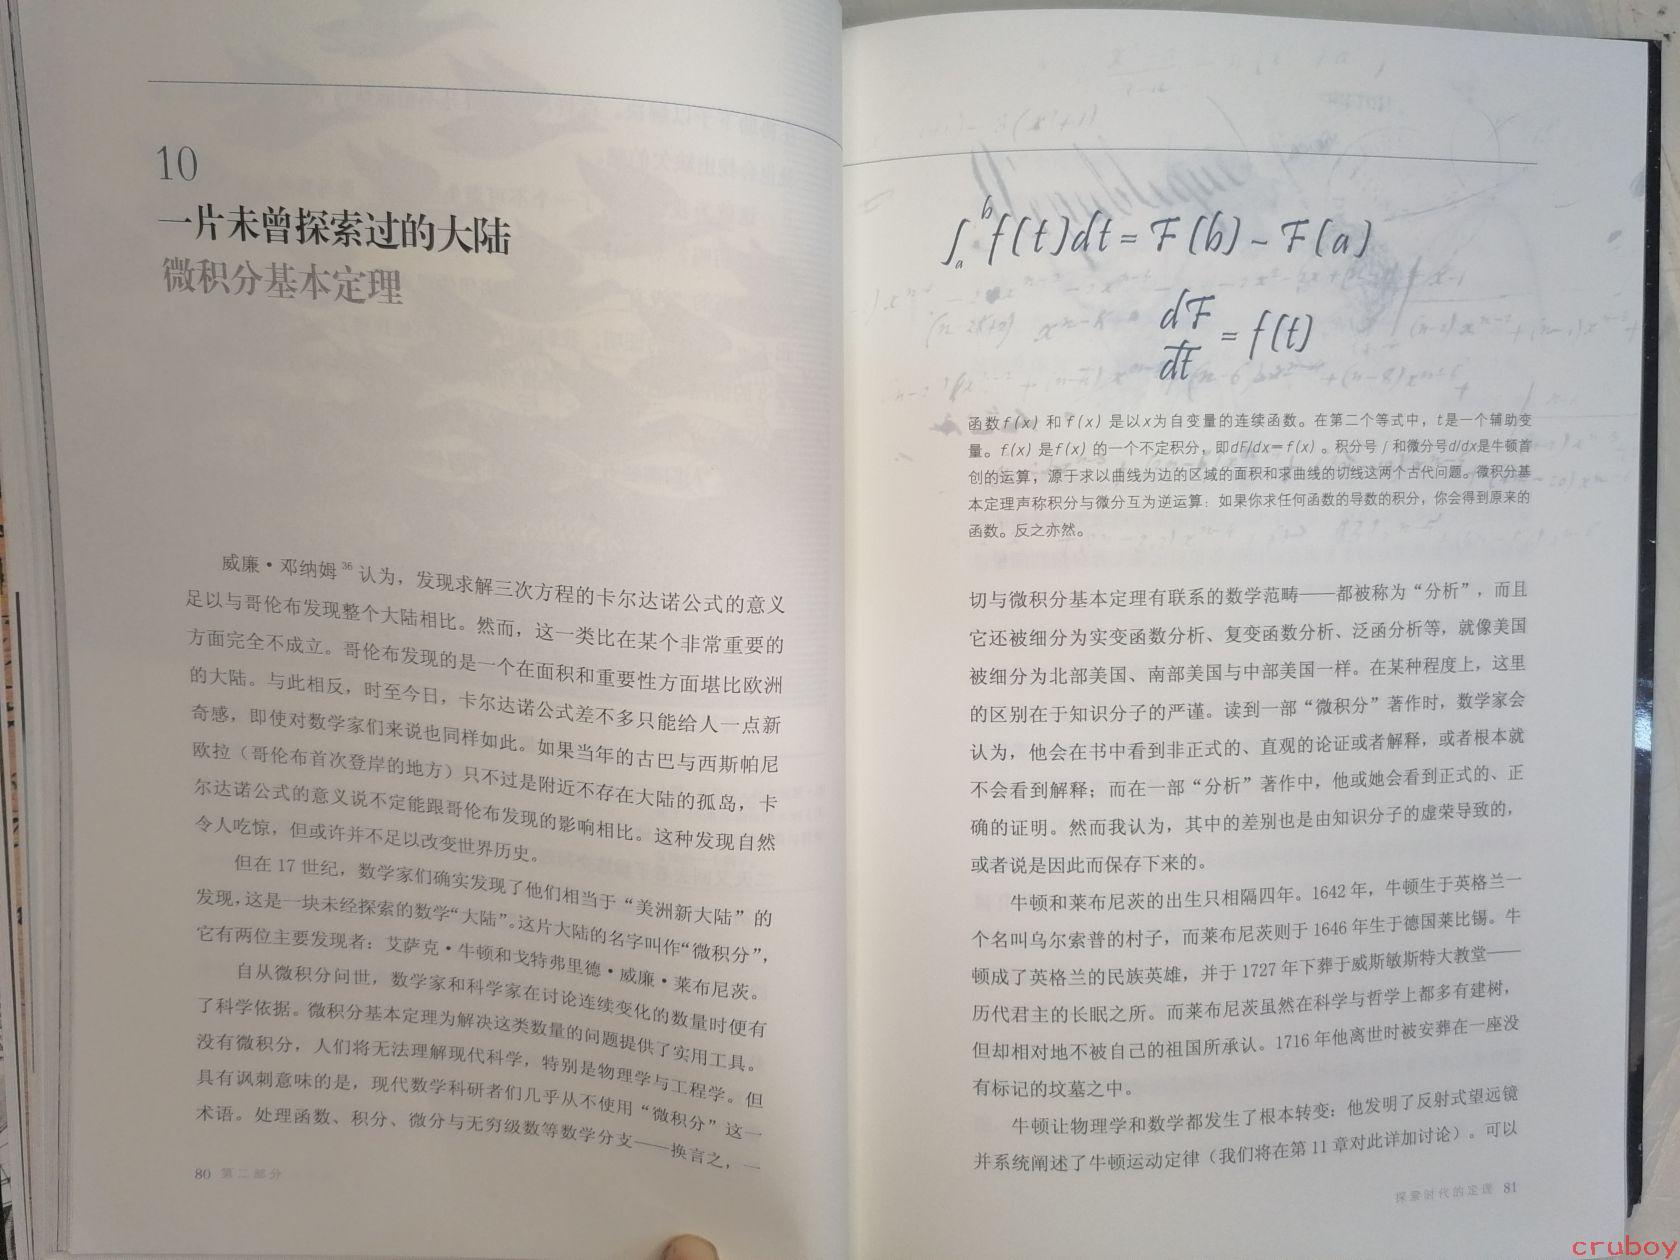 10
一片未曾探索过的大陆
微积分基本定理
威廉·邓纳姆36认为，发现求解三次方程的卡尔达诺公式的意义
足以与哥伦布发现整个大陆相比。然而，这一类比在某个非常重要的
方面完全不成立。哥伦布发现的是一个在面积和重要性方面堪比欧洲
的大陆。与此相反，时至今日，卡尔达诺公式差不多只能给人一点新
奇感，即使对数学家们来说也同样如此。如果当年的古巴与西斯帕尼
欧拉（哥伦布首次登岸的地方）只不过是附近不存在大陆的孤岛，卡
尔达诺公式的意义说不定能跟哥伦布发现的影响相比。这种发现自然
令人吃惊，但或许并不足以改变世界历史。
但在17世纪，数学家们确实发现了他们相当于“美洲新大陆”的
发现，这是一块未经探索的数学“大陆”。这片大陆的名字叫作“微积分”，
它有两位主要发现者：艾萨克·牛顿和戈特弗里德·威廉·莱布尼茨。
自从微积分问世，数学家和科学家在讨论连续变化的数量时便有
了科学依据。微积分基本定理为解决这类数量的问题提供了实用工具。
没有微积分，人们将无法理解现代科学，特别是物理学与工程学。但
具有讽刺意味的是，现代数学科研者们几乎从不使用“微积分”这一
术语。处理函数、积分、微分与无穷级数等数学分支——换言之，一
80 第二部分
∫ₐᵇ f(t)dt = F(b) - F(a)
dF/dt = f(t)
函数f(x)和f(x)是以x为自变量的连续函数。在第二个等式中，t是一个辅助变
量。f(x)是f(x)的一个不定积分，即dF/dx=f(x)。积分号∫和微分号d/dx是牛顿首
创的运算，源于求以曲线为边的区域的面积和求曲线的切线这两个古代问题。微积分基
本定理声称积分与微分互为逆运算：如果你求任何函数的导数的积分，你会得到原来的
函数。反之亦然。
切与微积分基本定理有联系的数学范畴——都被称为“分析”，而且
它还被细分为实变函数分析、复变函数分析、泛函分析等，就像美国
被细分为北部美国、南部美国与中部美国一样。在某种程度上，这里
的区别在于知识分子的严谨。读到一部“微积分”著作时，数学家会
认为，他会在书中看到非正式的、直观的论证或者解释，或者根本就
不会看到解释；而在一部“分析”著作中，他或她会看到正式的、正
确的证明。然而我认为，其中的差别也是由知识分子的虚荣导致的，
或者说是因此而保存下来的。
牛顿和莱布尼茨的出生只相隔四年。1642年，牛顿生于英格兰一
个名叫乌尔索普的村子，而莱布尼茨则于1646年生于德国莱比锡。牛
顿成了英格兰的民族英雄，并于1727年下葬于威斯敏斯特大教堂——
历代君主的长眠之所。而莱布尼茨虽然在科学与哲学上都多有建树，
但却相对地不被自己的祖国所承认。1716年他离世时被安葬在一座没
有标记的坟墓之中。
牛顿让物理学和数学都发生了根本转变：他发明了反射式望远镜
并系统阐述了牛顿运动定律（我们将在第11章对此详加讨论）。可以
探索时代的定理 81
cruboy